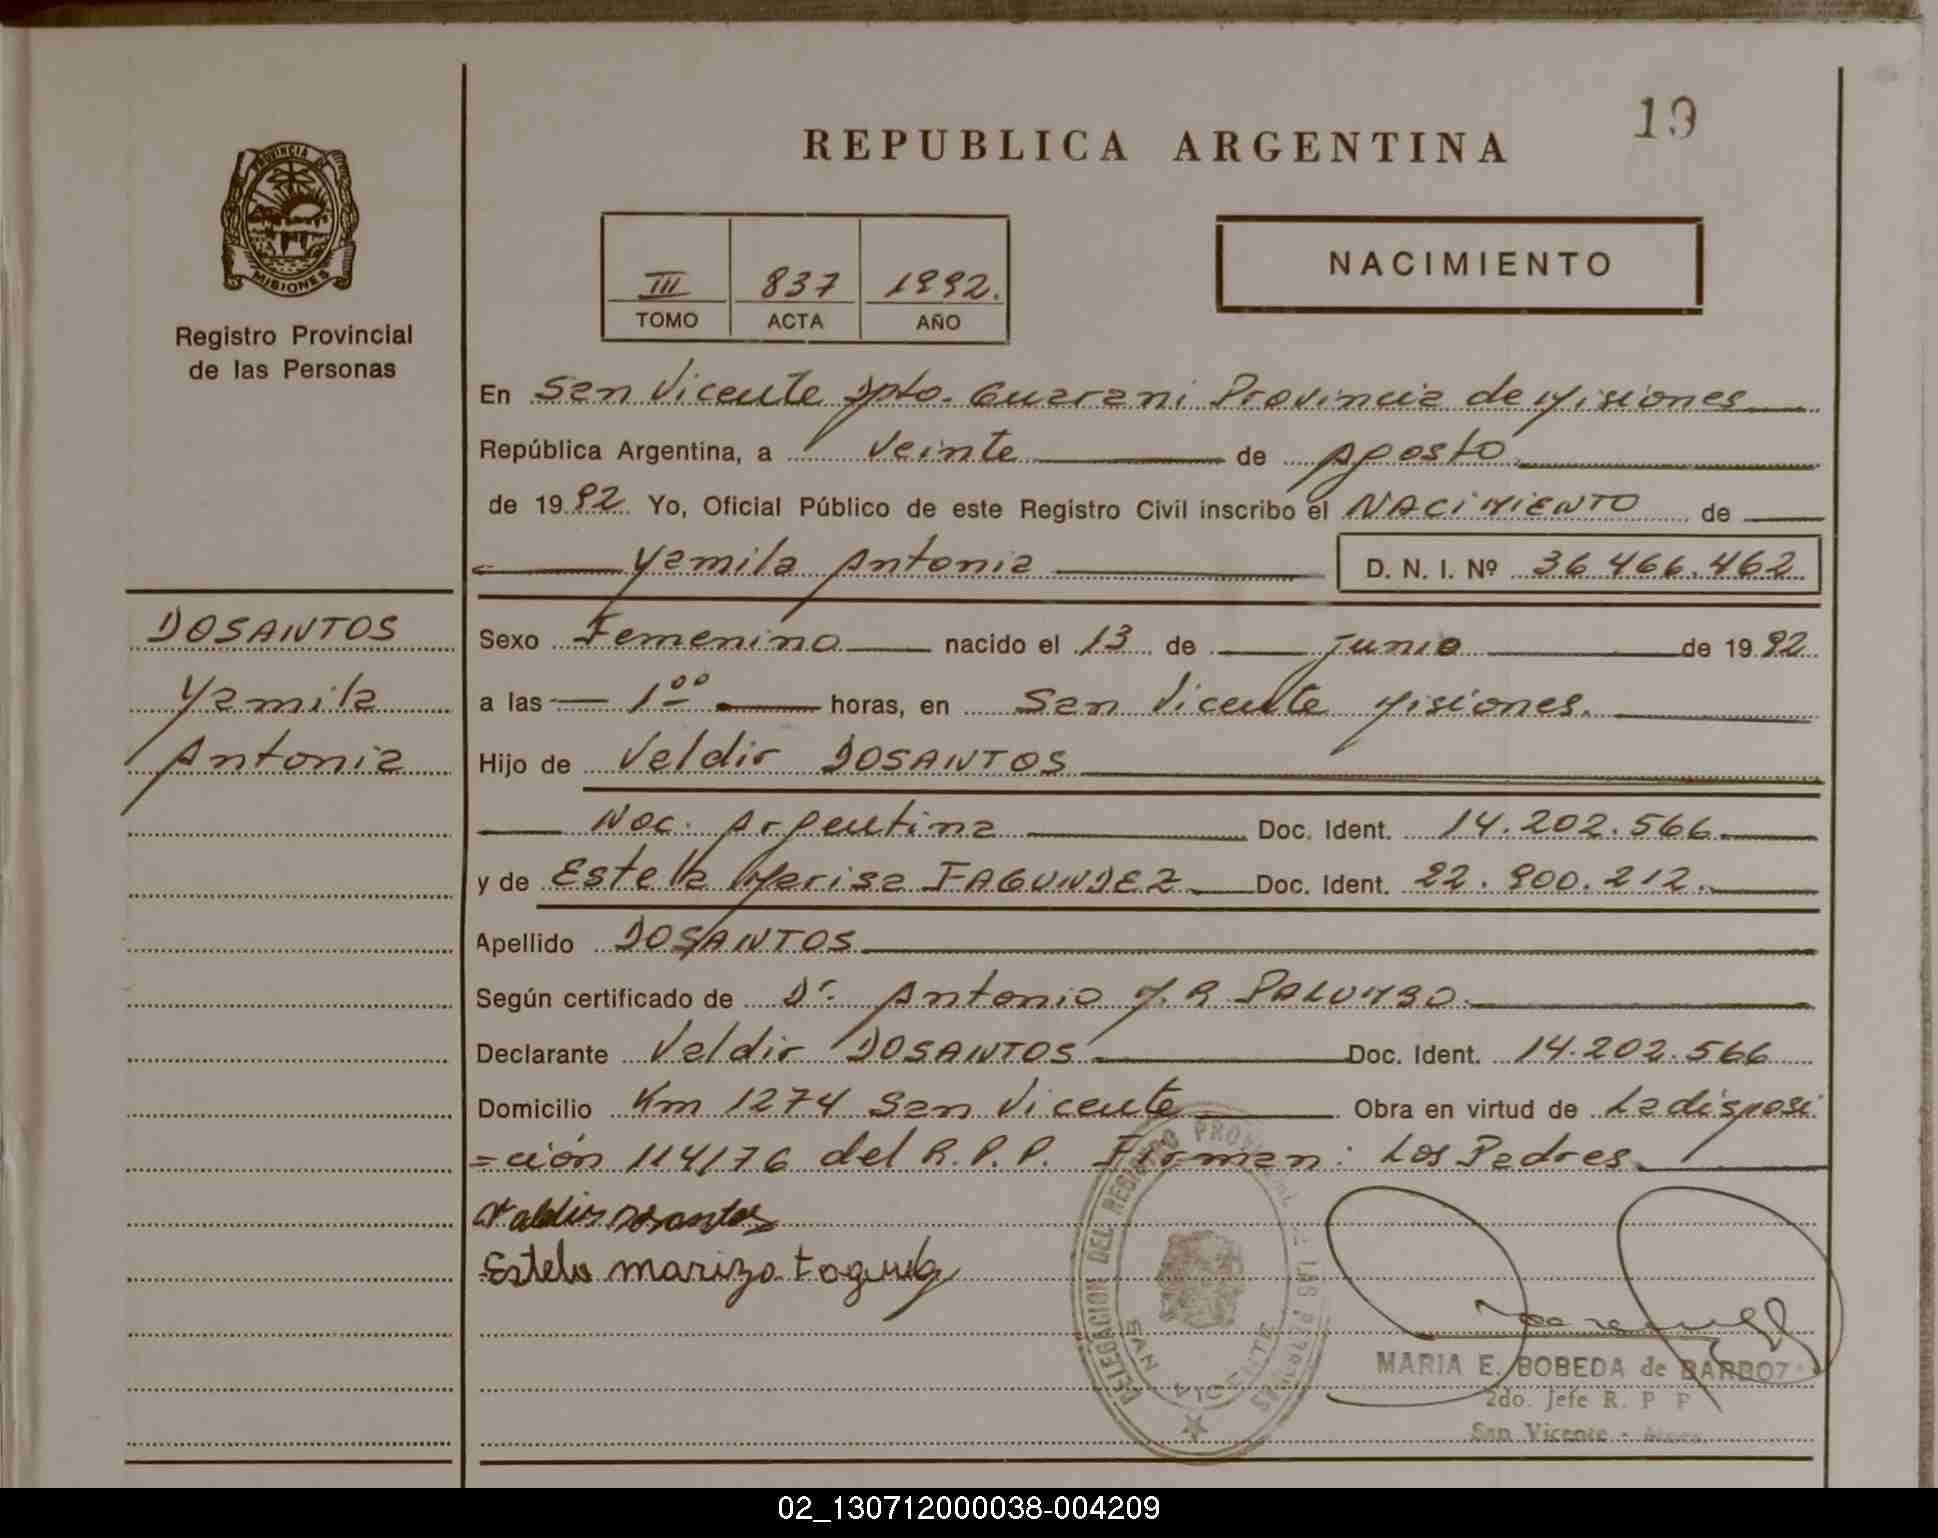 19
REPUBLICA ARGENTINA
PROVINCIA DE
MISIONES
Registro Provincial
de las Personas
III 837 1992.
TOMO ACTA AÑO
NACIMIENTO
En San Vicente Dpto. Guarani Provincia de Misiones
República Argentina, a veinte de Agosto
de 1992. Yo, Oficial Público de este Registro Civil inscribo el NACIMIENTO de
Yamila Antonia D. N. I. Nº 36 466.462
DOSANTOS
Yamila
Antonia
Sexo Femenino nacido el 13 de Junio de 1992
a las 1⁰⁰ horas, en San Vicente Misiones.
Hijo de Valdir DOSANTOS
Nac. Argentina Doc. Ident. 14.202.566
y de Estela Marisa FAGUNDEZ Doc. Ident. 22.900.212.
Apellido DOSANTOS
Según certificado de Dr. Antonio M. R. PALUMBO
Declarante Valdir DOSANTOS Doc. Ident. 14.202.566
Domicilio Km 1274 San Vicente Obra en virtud de La disposi
=ción 114/76 del R.P.P. Firman: Los Padres
Valdir Dosantos
Estela mariza
DELEGACION DEL REGISTRO PROVINCIAL DE LAS PERSONAS
SAN VICENTE
MARIA E. BOBEDA de BARBOZA
2do. Jefe R. P. P
San Vicente -
02_130712000038-004209